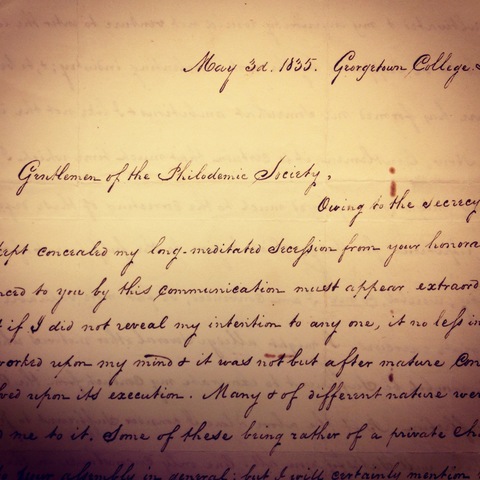 May 3d. 1835. Georgetown College.
Gentlemen of the Philodemic Society,
Owing to the secrecy
kept concealed my long-meditated secession from your honora
nced to you by this communication must appear extraord
if I did not reveal my intention to any one, it no less in
worked upon my mind & it was not but after mature con
ved upon its execution. Many & of different nature wer
d me to it. Some of these being rather of a private cha
your assembly in general; but I will certainly mention